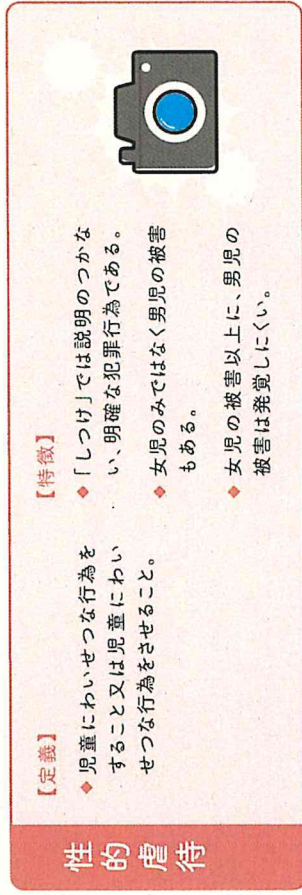 性的虐待
【定義】
◆児童にわいせつな行為を
すること又は児童にわい
せつな行為をさせること。
【特徴】
◆「しつけ」では説明のつかな
い、明確な犯罪行為である。
◆女児のみではなく男児の被害
もある。
◆女児の被害以上に、男児の
被害は発覚しにくい。